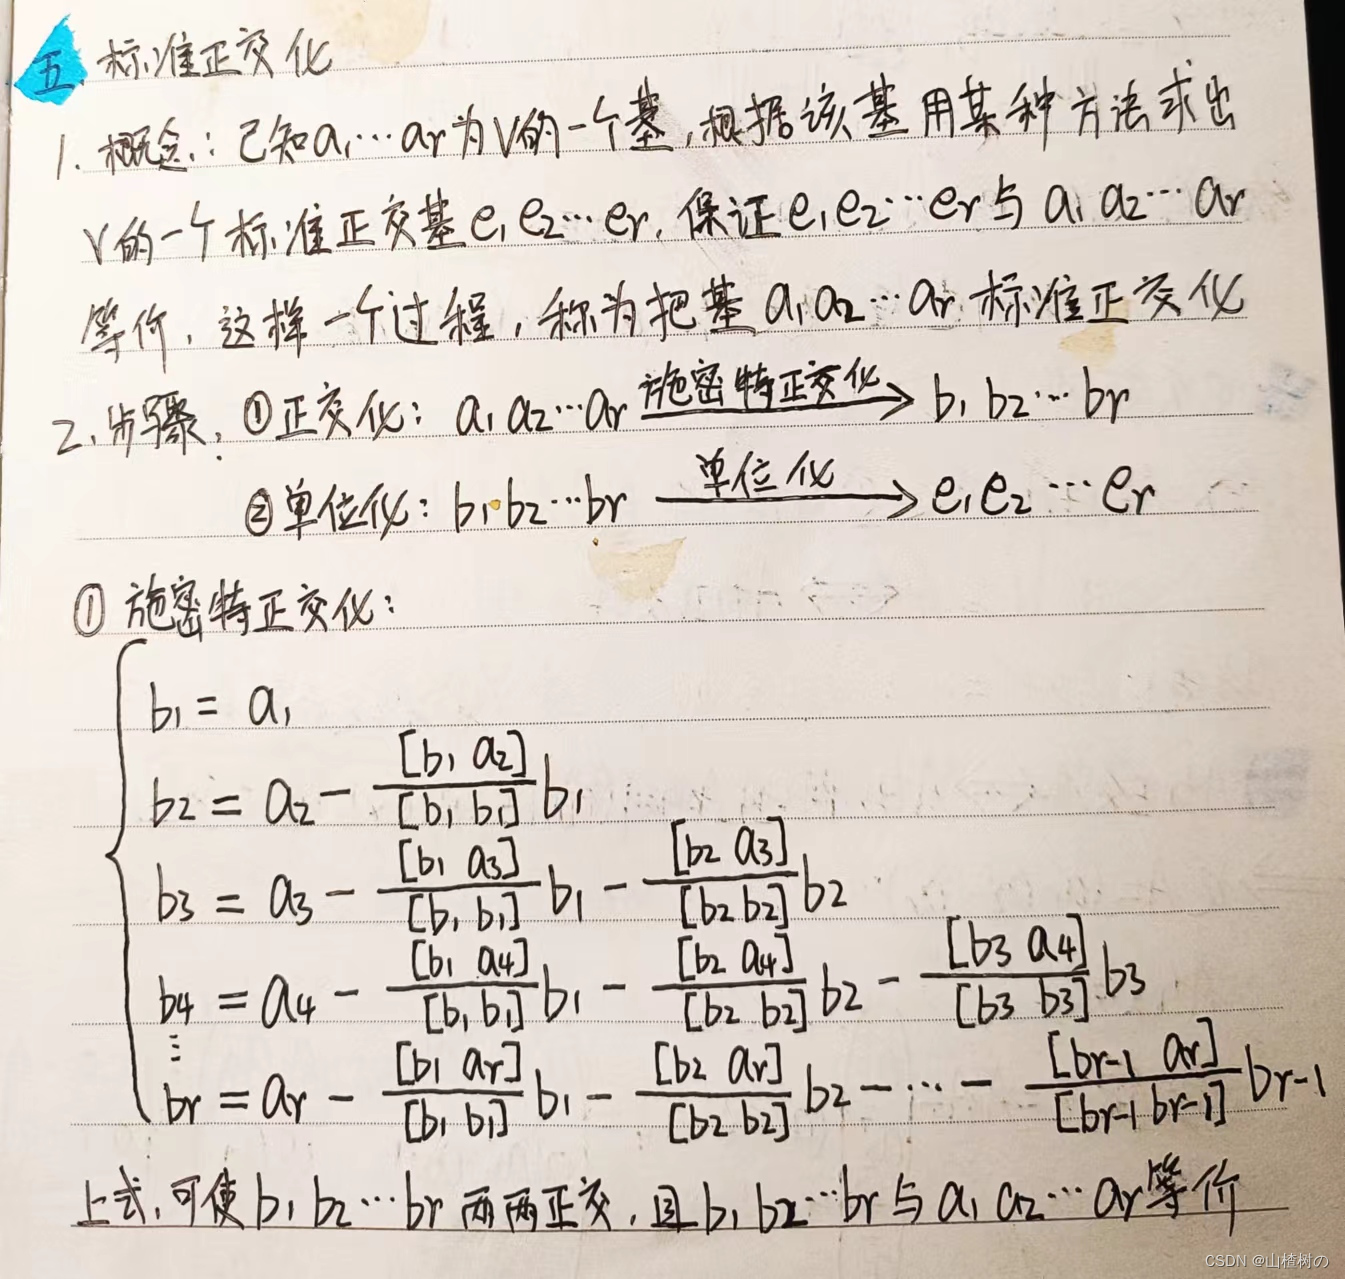 五 标准正交化
1. 概念: 已知a₁…aᵣ为V的一个基,根据该基用某种方法求出
V的一个标准正交基e₁e₂…eᵣ,保证e₁e₂…eᵣ与a₁a₂…aᵣ
等价,这样一个过程,称为把基a₁a₂…aᵣ标准正交化
2. 步骤: ①正交化: a₁a₂…aᵣ —施密特正交化→ b₁b₂…bᵣ
②单位化: b₁b₂…bᵣ —单位化→ e₁e₂…eᵣ
① 施密特正交化:
b₁ = a₁
b₂ = a₂ - [b₁ a₂]/[b₁ b₁] b₁
b₃ = a₃ - [b₁ a₃]/[b₁ b₁] b₁ - [b₂ a₃]/[b₂ b₂] b₂
b₄ = a₄ - [b₁ a₄]/[b₁ b₁] b₁ - [b₂ a₄]/[b₂ b₂] b₂ - [b₃ a₄]/[b₃ b₃] b₃
⋮
bᵣ = aᵣ - [b₁ aᵣ]/[b₁ b₁] b₁ - [b₂ aᵣ]/[b₂ b₂] b₂ - … - [bᵣ₋₁ aᵣ]/[bᵣ₋₁ bᵣ₋₁] bᵣ₋₁
上式,可使b₁b₂…bᵣ两两正交,且b₁b₂…bᵣ与a₁a₂…aᵣ等价
CSDN @山楂树の